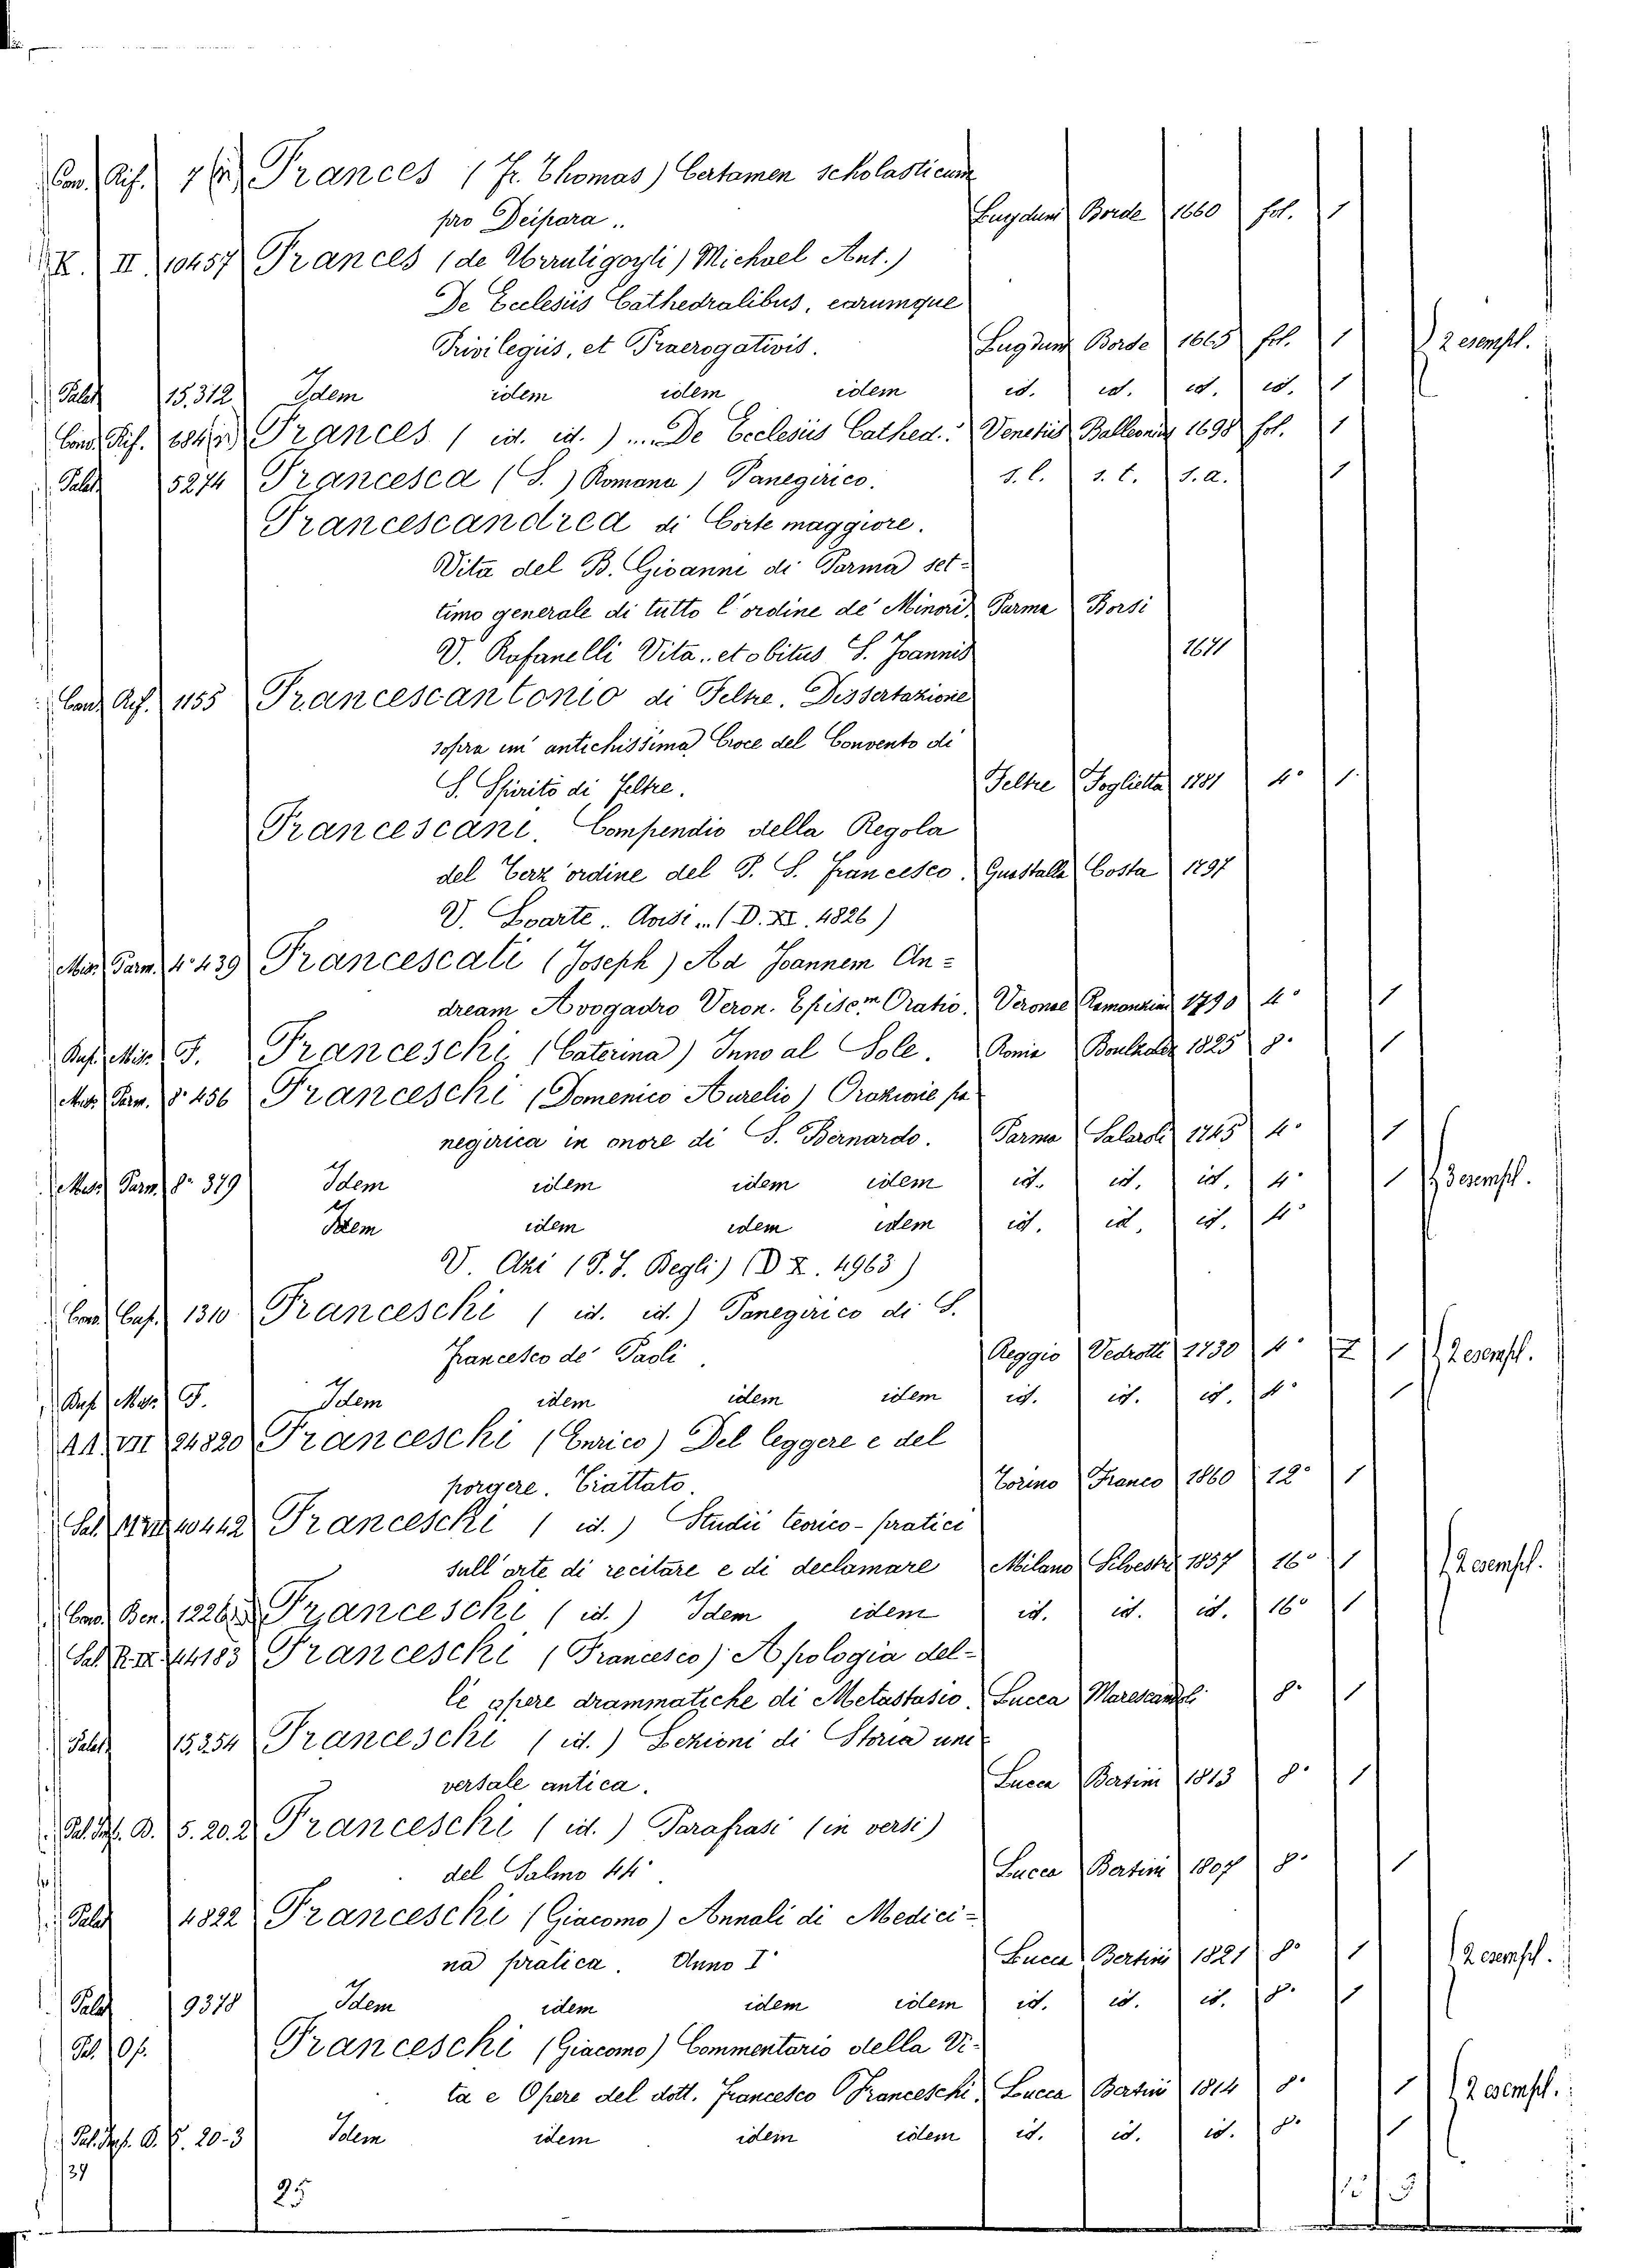 Con. Rif. Frances (Fr. Thomas) Certamen scholasticum
pro Deipara.. Lugduni Borde 1660 fol. 1
K. II 10457 Frances (de Urrutigoyti) Michael Ant.)
De Ecclesiis Cathedralibus, earumque
Privilegiis, et Praerogativis. Lugduni Borde 1665 fol. 1 2 esempl.
Palat 15.312 Idem idem idem idem id. id. id. id. 1
Cond. Rif. Frances ( id. id. ) ... De Ecclesiis Cathed.: Venetiis Balleonius 1698 fol. 1
Palat. 5274 Francesca (S.) Romana) Panegirico. s. l. s. t. s. a. 1
Francescandrea di Corte maggiore.
Vita del B. Giovanni di Parma set-
timo generale di tutto l'ordine de' Minori. Parma Borsi
V. Rafanelli Vita.. et obitus S. Joannis 1671
Conv. Rif. 1155 Francescantonio di Feltre. Dissertazione
sopra un' antichissima Croce del Convento di
S. Spirito di Feltre. Feltre Foglietta 1781 4° 1
Francescani. Compendio della Regola
del Terz'ordine del P. S. Francesco. Guastalla Costa 1797
V. Loarte.. Avisi... (D. XI. 4826)
Misc. Parm. 4° 439 Francescati (Joseph) Ad Joannem An-
dream Avogadro Veron. Episc.m Oratio. Veronae Ramanzini 1790 4° 1
Raf. Misc. F. Franceschi (Caterina) Inno al Sole. Roma Boulzaler 1825 8° 1
Misc. Parm. 8° 456 Franceschi (Domenico Aurelio) Orazione pa
negirica in onore di S. Bernardo. Parma Salaroli 1745 4° 1
Misc. Parm. 8° 379 Idem idem idem idem id. id. id. 4° 1 3 esempl.
Idem idem idem idem id. id. id. 4°
V. Azi (P. J. Begli) (D X. 4963)
Conv. Cap. 1310 Franceschi ( id. id.) Panegirico di S.
Francesco de' Paoli. Reggio Vedrotti 1730 4° 1 2 esempl.
Raf. Misc. F. Idem idem idem idem id. id. id. 4° 1
AA. VII 24820 Franceschi (Enrico) Del leggere e del
porgere. Trattato. Torino Franco 1860 12° 1
Sal. 10442 Franceschi ( id.) Studii teorico-pratici
sull'arte di recitare e di declamare Milano Silvestri 1857 16° 1 2 esempl.
Cond. Ben. Franceschi ( id.) Idem idem id. id. id. 16° 1
Sal. 44183 Franceschi (Francesco) Apologia del-
le opere drammatiche di Metastasio. Lucca Marescandoli 8° 1
Palat. 15.254 Franceschi ( id.) Lezioni di Storia uni
versale antica. Lucca Bertini 1813 8° 1
Pal. Inf. B. 5. 20. 2 Franceschi ( id. ) Parafrasi (in versi)
del Salmo 44° Lucca Bertini 1807 8° 1
Palat 4822 Franceschi (Giacomo) Annali di Medici-
na pratica. Anno I° Lucca Bertini 1821 8° 1 2 esempl.
Palat 9378 Idem idem idem idem id. id. id. 8° 1
Pal. Op. Franceschi (Giacomo) Commentario della Vi-
ta e Opere del dott. Francesco Franceschi. Lucca Bertini 1814 8° 1 2 esempl.
Pal. Inf. B. 5. 20-3 Idem idem idem idem id. id. id. 8° 1
25